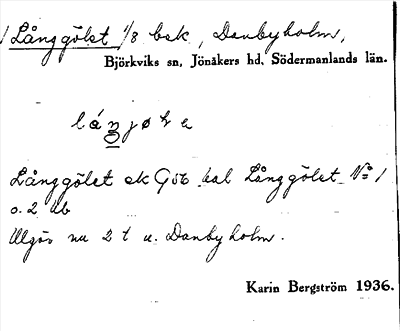 Långgölet 1/8 bsk, Danbyholm,
Björkviks sn, Jönåkers hd, Södermanlands län.
Långgölet ek Gsb kal Långgölet No 1
o. 2 Ub
Utgör nu 2 t u. Danbyholm.
Karin Bergström 1936.